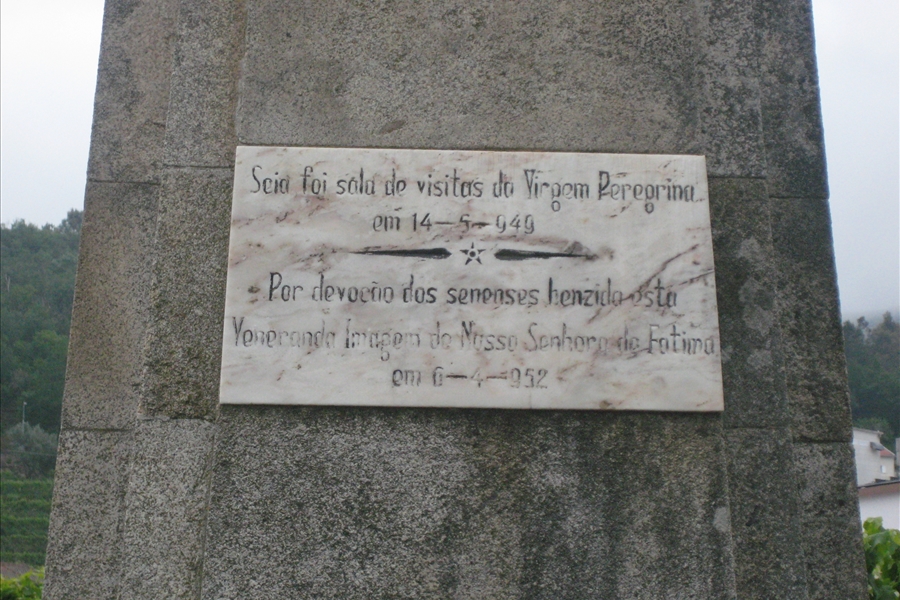 Seia foi sala de visitas da Virgem Peregrina
em 14-5-949
Por devoção dos senenses benzida esta
Veneranda Imagem de Nossa Senhora de Fatima
em 6-4-952